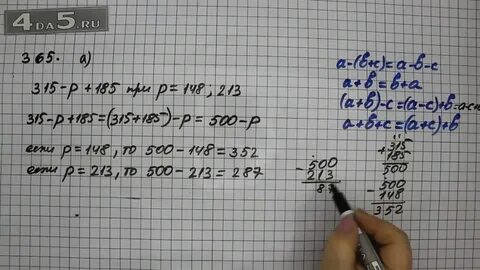 4da5.RU
365. а)
315-p+185 при p=148; 213
315-p+185=(315+185)-p=500-p
если p=148, то 500-148=352
если p=213, то 500-213=287
a-(b+c)=a-b-c
a+b=b+a
(a+b)-c=(a-c)+b=
a+b+c=(a+c)+b
+315
185
500
-500
148
352
-500
213
87